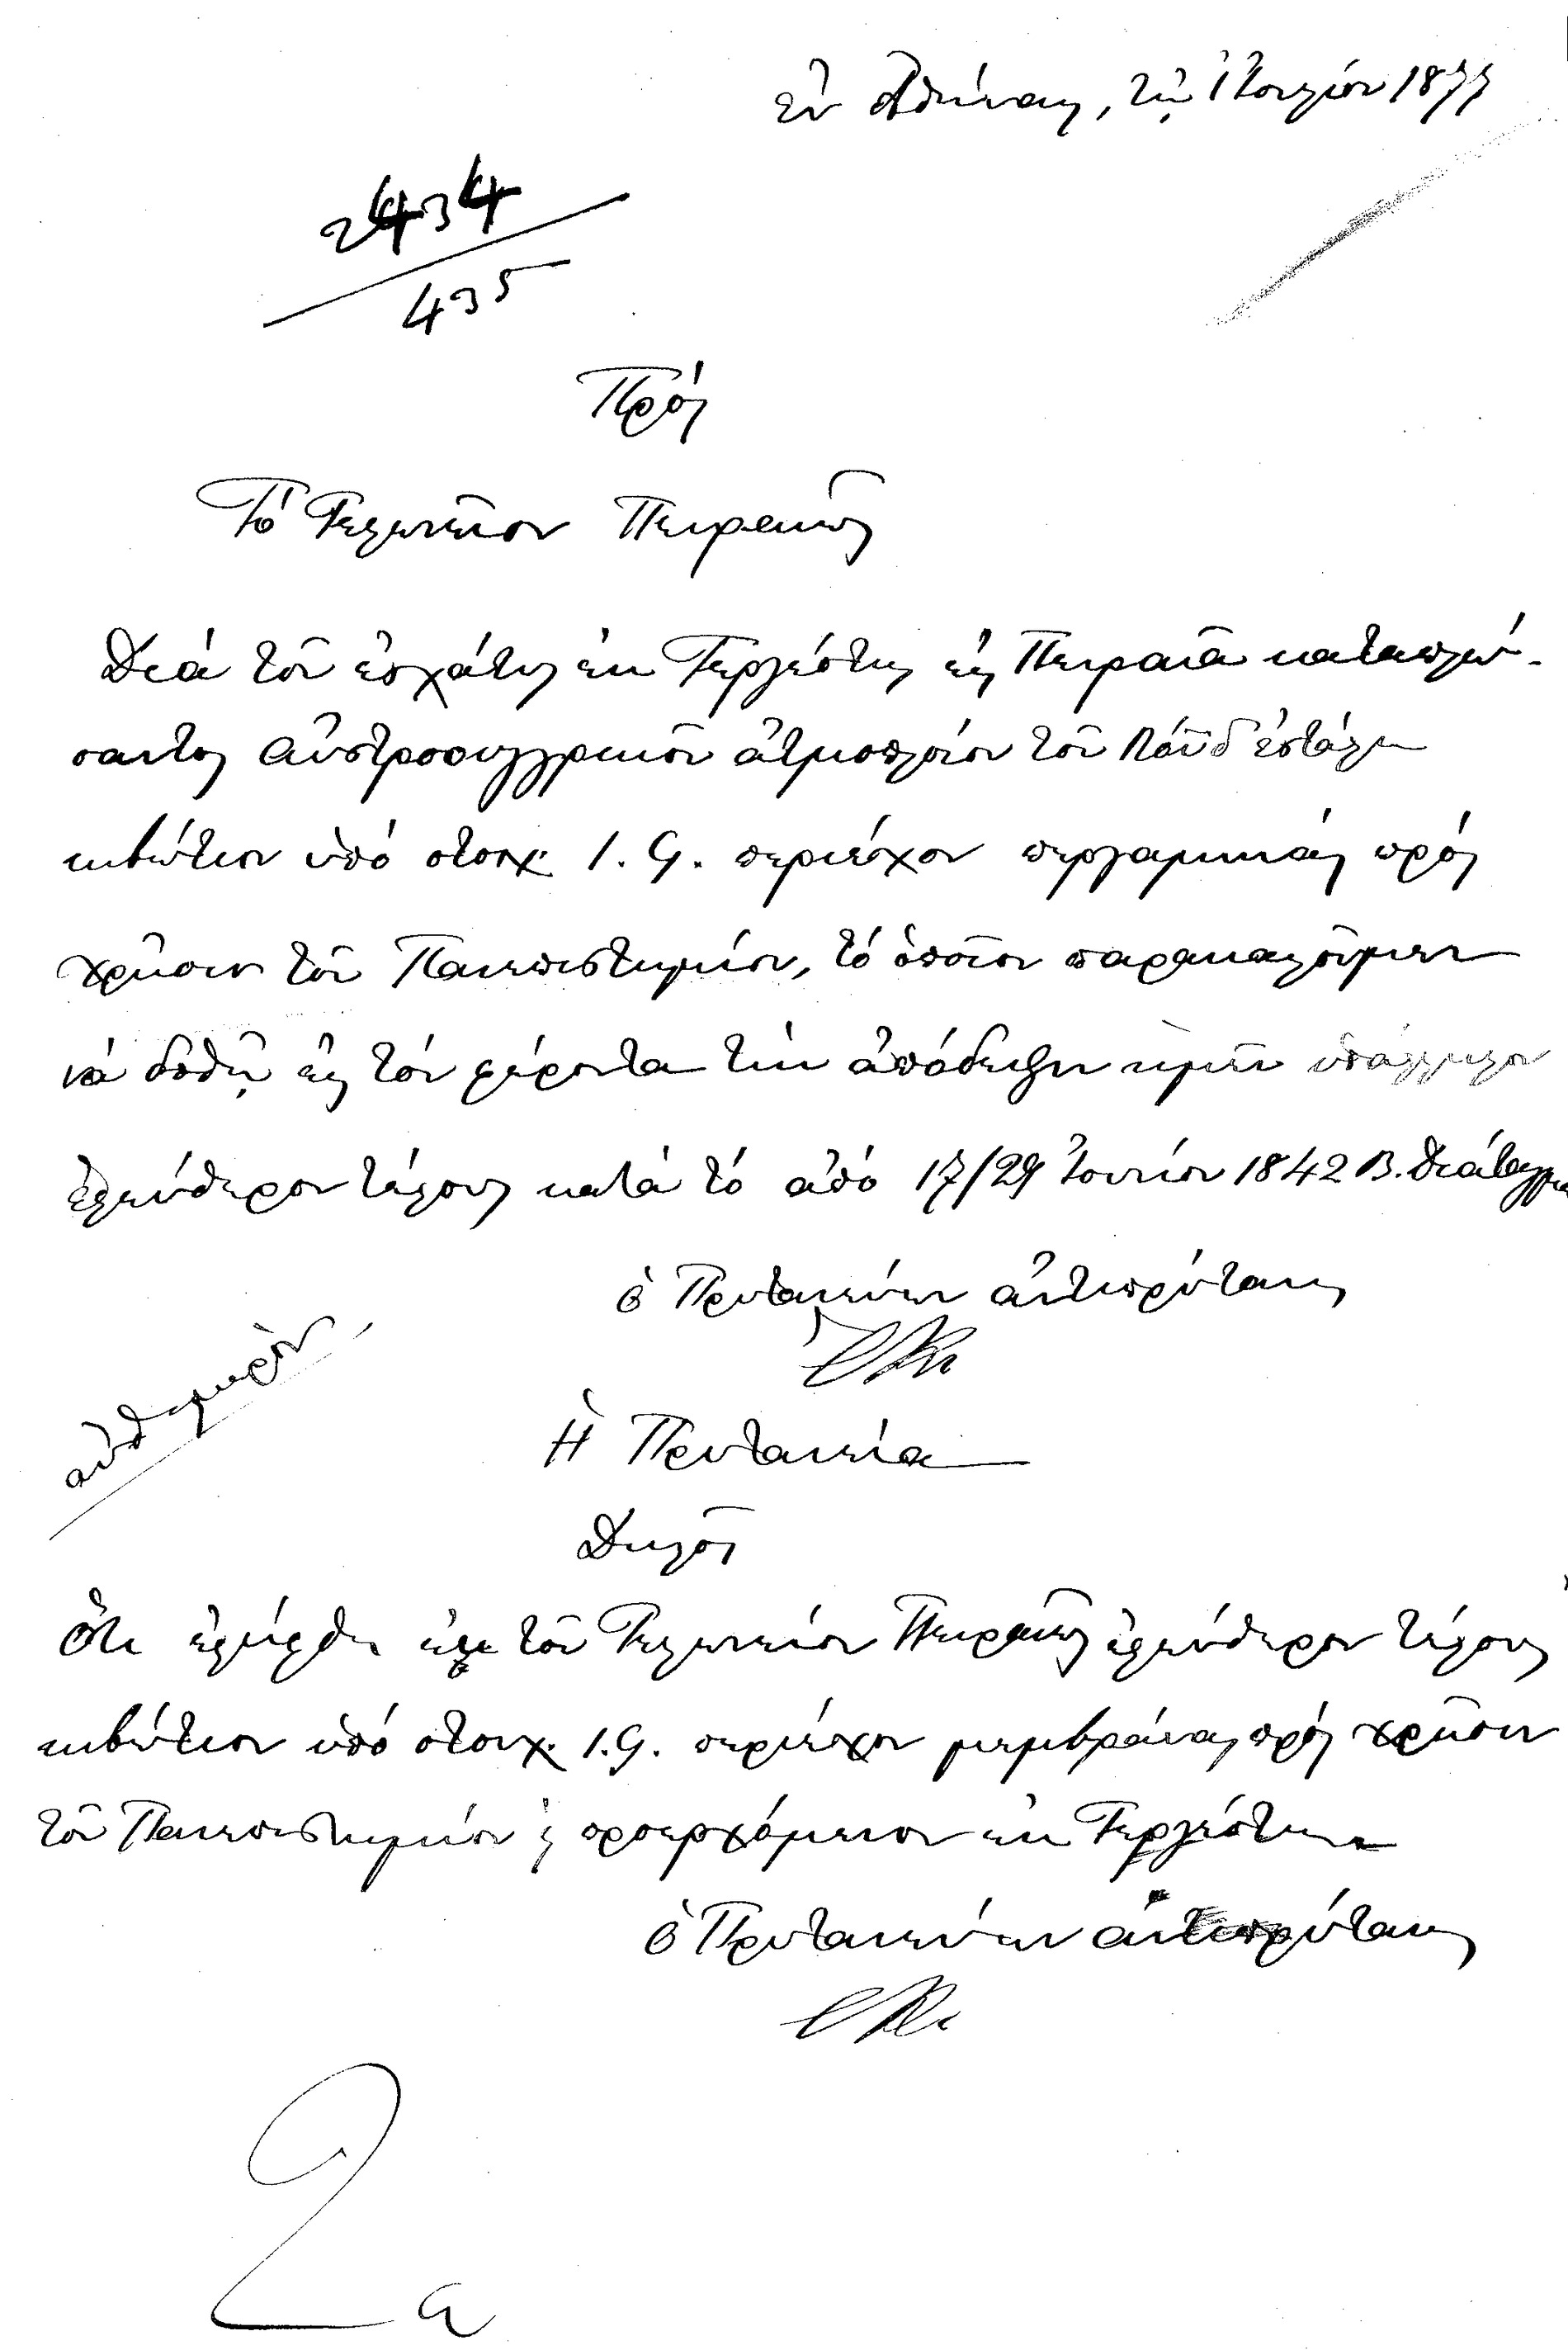 ἐν Ἀθήναις, τῇ 1 Ἰουλίου 1877
2434
435
Πρὸς
Τὸ Τελωνεῖον Πειραιῶς
Διὰ τοῦ ἐσχάτως ἐκ Τεργέστης εἰς Πειραιᾶ καταπλεύ-
σαντος Αὐστροουγγρικοῦ ἀτμοπλοίου τοῦ Λόϋδ ἐστάλη
κιβώτιον ὑπὸ στοιχ. I. G. περιέχον περγαμηνὰς πρὸς
χρῆσιν τοῦ Πανεπιστημίου, τὸ ὁποῖον παρακαλοῦμεν
νὰ δοθῇ εἰς τὸν φέροντα τὴν ἀπόδειξιν ἡμῶν ὑπάλληλον
ἐλεύθερον τέλους κατὰ τὸ ἀπὸ 17/29 Ἰουνίου 1842 Β. Διάταγμα
ὁ Πρυτανεύων ἀντιπρύτανις
αὐθημερὸν
Ἡ Πρυτανεία
Δηλοῖ
Ὅτι ἐλήφθη ἐκ τοῦ Τελωνείου Πειραιῶς ἐλεύθερον τέλους
κιβώτιον ὑπὸ στοιχ. I. G. περιέχον μεμβράνας πρὸς χρῆσιν
τοῦ Πανεπιστημίου προερχόμενον ἐκ Τεργέστης
ὁ Πρυτανεύων ἀντιπρύτανις